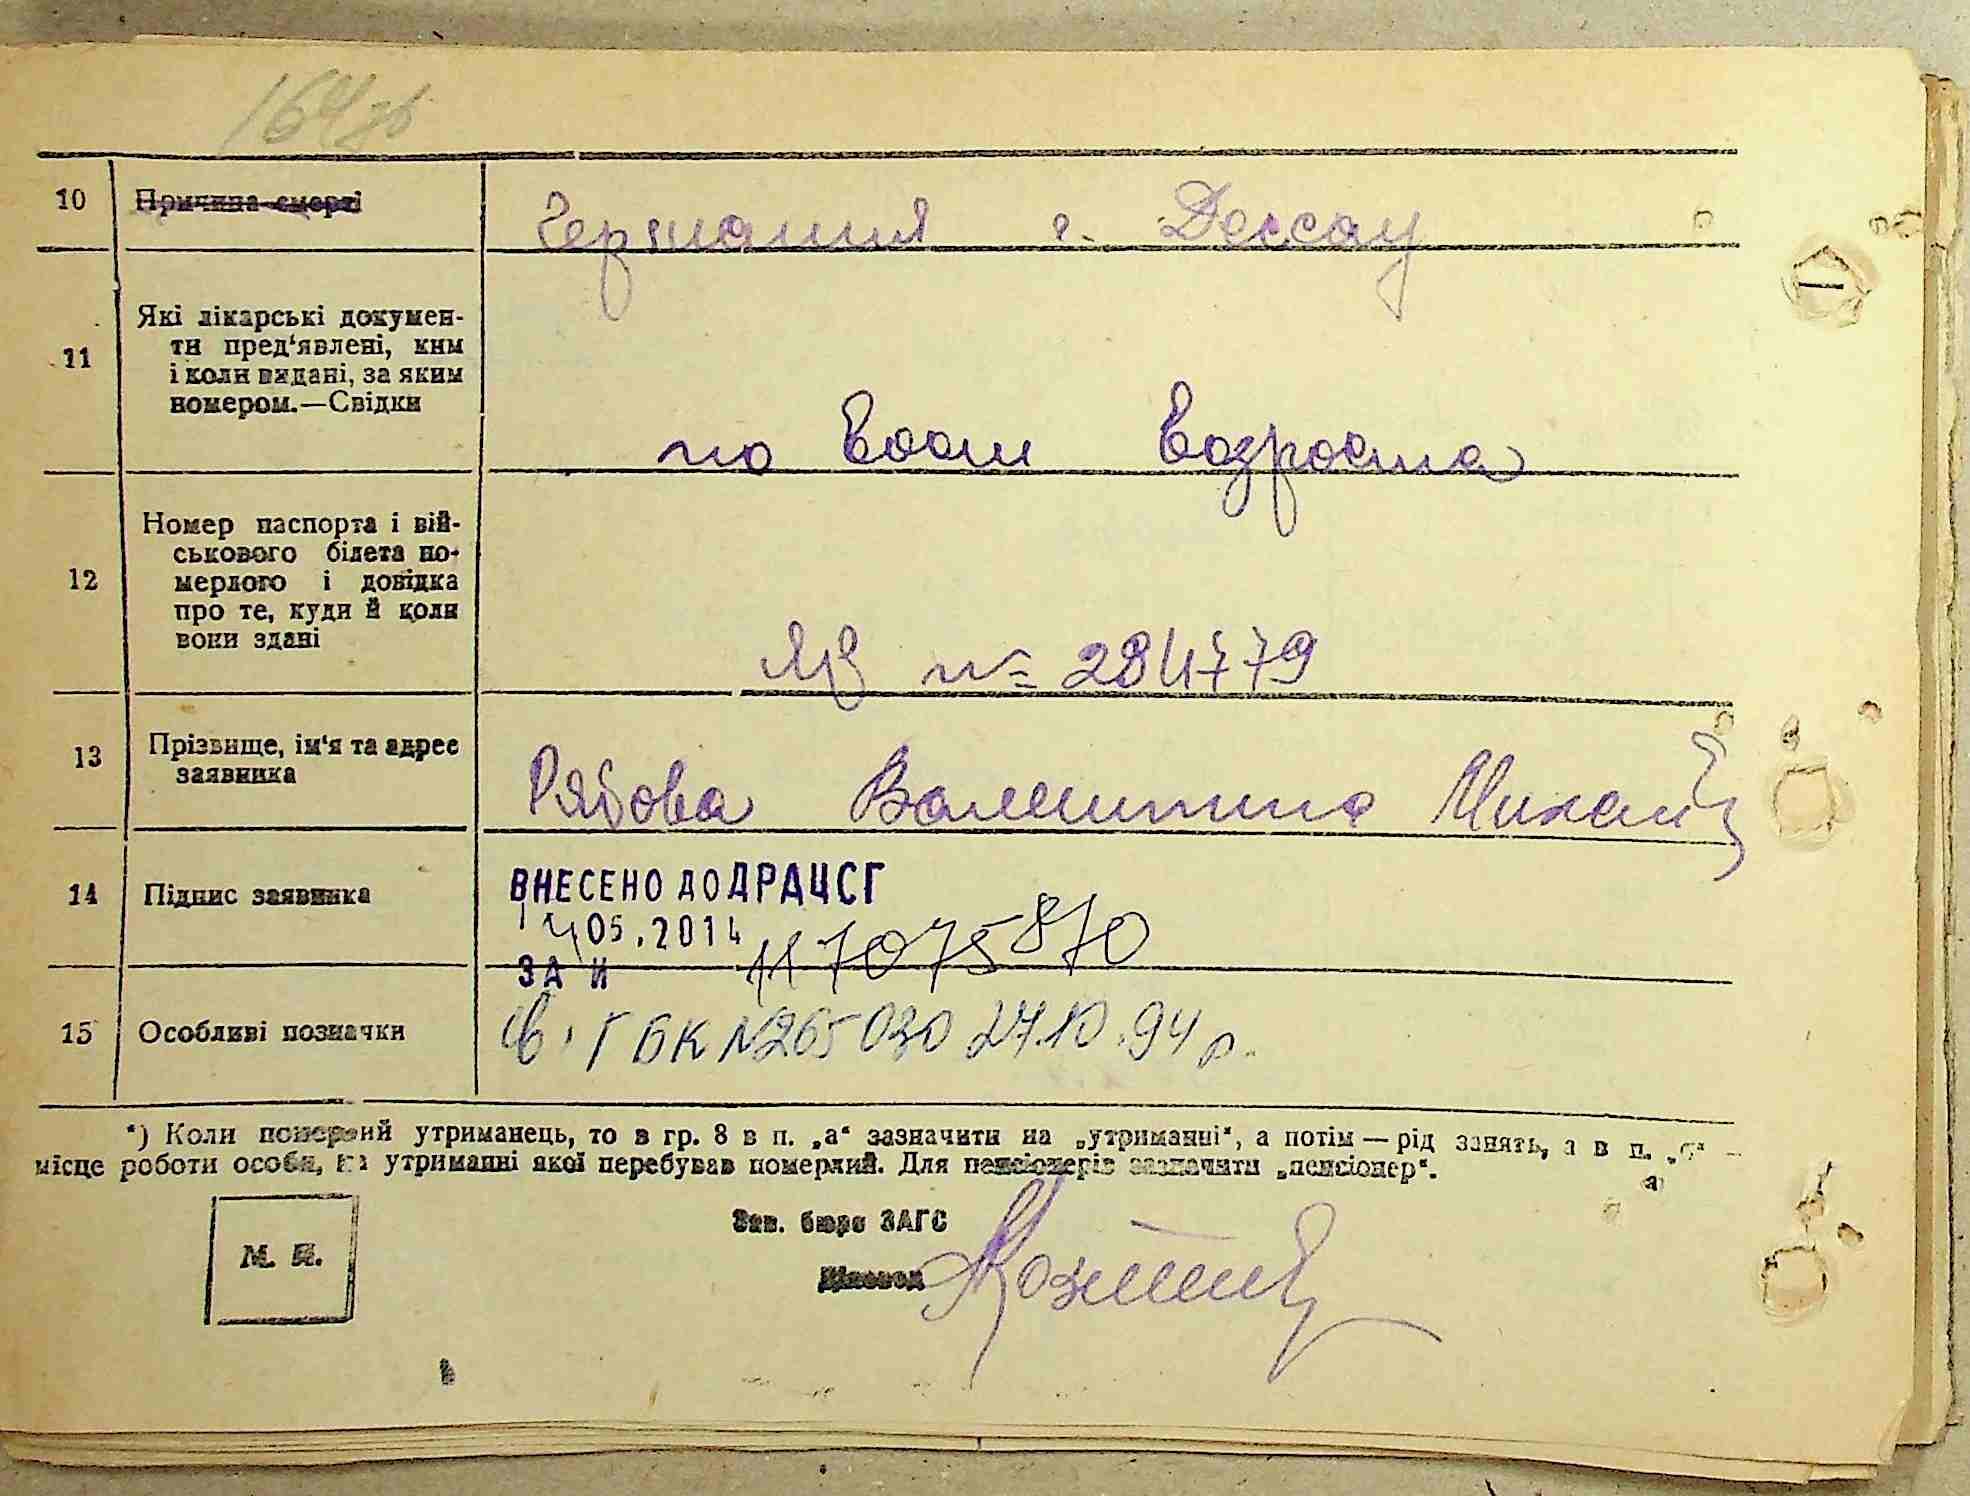 164зв
10 Причина смерті Германия г. Дессау
11 Які лікарські докумен-
ти пред'явлені, ким
і коли видані, за яким
номером.—Свідки
по Воон возраста
12 Номер паспорта і вій-
ськового білета по-
мерлого і довідка
про те, куди й коли
вони здані
ЯВ № 284779
13 Прізвище, ім'я та адрес
заявника
Рябова Валентина Михайл
14 Підпис заявника
ВНЕСЕНО ДО ДРАЦСГ
14 05.2014
ЗА N 117075870
15 Особливі позначки
св. І БК №265030 27.10.94 р.
*) Коли померлий утриманець, то в гр. 8 в п. „а“ зазначити на „утриманні“, а потім — рід занять, а в п. „б“ —
місце роботи особи, на утриманні якої перебував померлий. Для пенсіонерів зазначити „пенсіонер“.
Зав. бюро ЗАГС
М. П.
Діловод